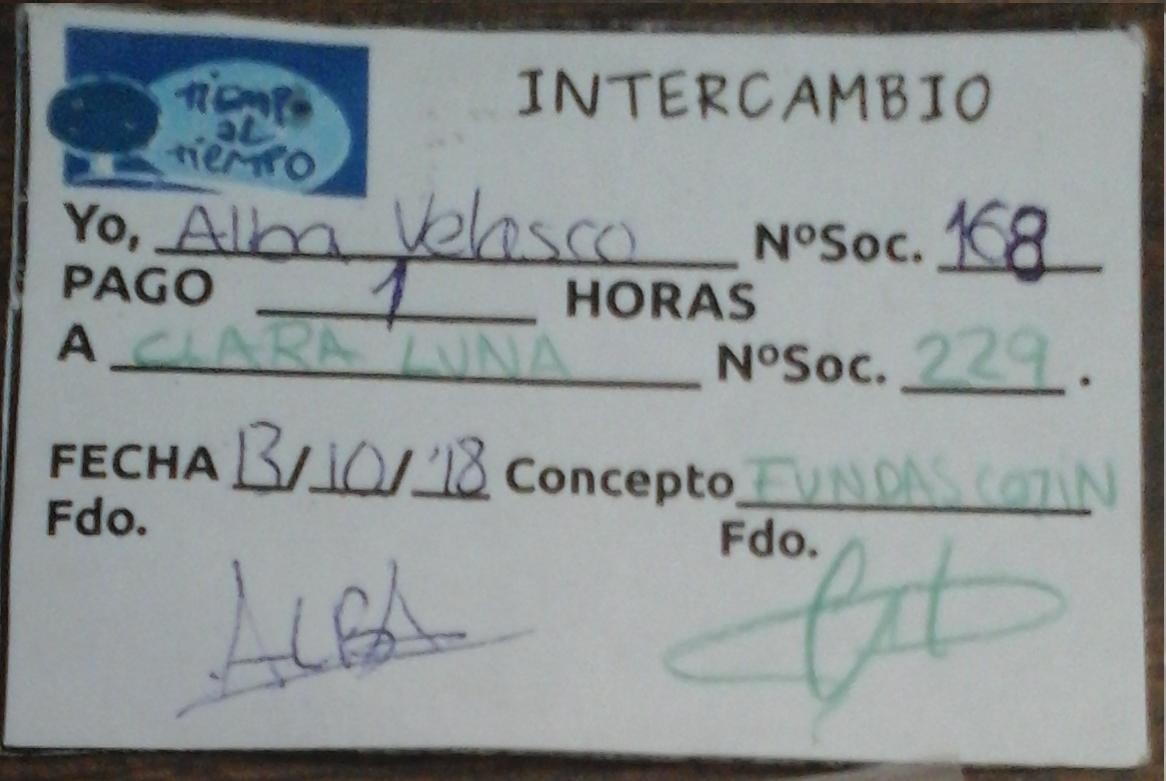 TIEMPO
AL
TIEMPO
INTERCAMBIO
Yo, Alba Velasco NºSoc. 168
PAGO 1 HORAS
A CLARA LUNA NºSoc. 229.
FECHA 13/10/'18 Concepto FUNDAS COJIN
Fdo. Fdo.
ALBA